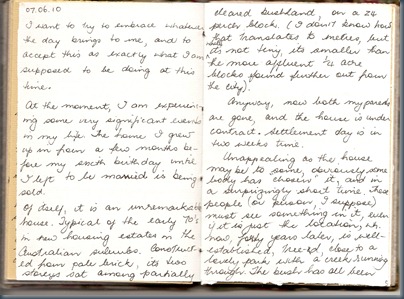 07.06.10
I want to try to embrace whatever
the day brings to me, and to
accept this as exactly what I am
supposed to be doing at this
time.
At the moment, I am experienc-
ing some very significant events
in my life. The home I grew
up in from a few months be-
fore my sixth birthday until
I left to be married is being
sold.
Of itself, it is an unremarkable
house. Typical of the early 70's
in new housing estates in the
Australian suburbs. Construct-
ed from pale brick, its two
storeys sat among partially
cleared bushland, on a 24
perch block. (I don't know how
that translates to metres, but
whilst it's not tiny, it's smaller than
the more affluent ¼ acre
blocks found further out from
the city).
Anyway, now both my parents
are gone, and the house is under
contract. Settlement day is in
two weeks time.
Unappealing as the house
may be to some, obviously some
body has chosen it, and in
a surprisingly short time. Those
people (or person, I suppose)
must see something in it, even
if it is just the location, wh.
now, forty years later, is well-
established, tree-ed close to a
lovely park with a creek running
through. The bush has all been